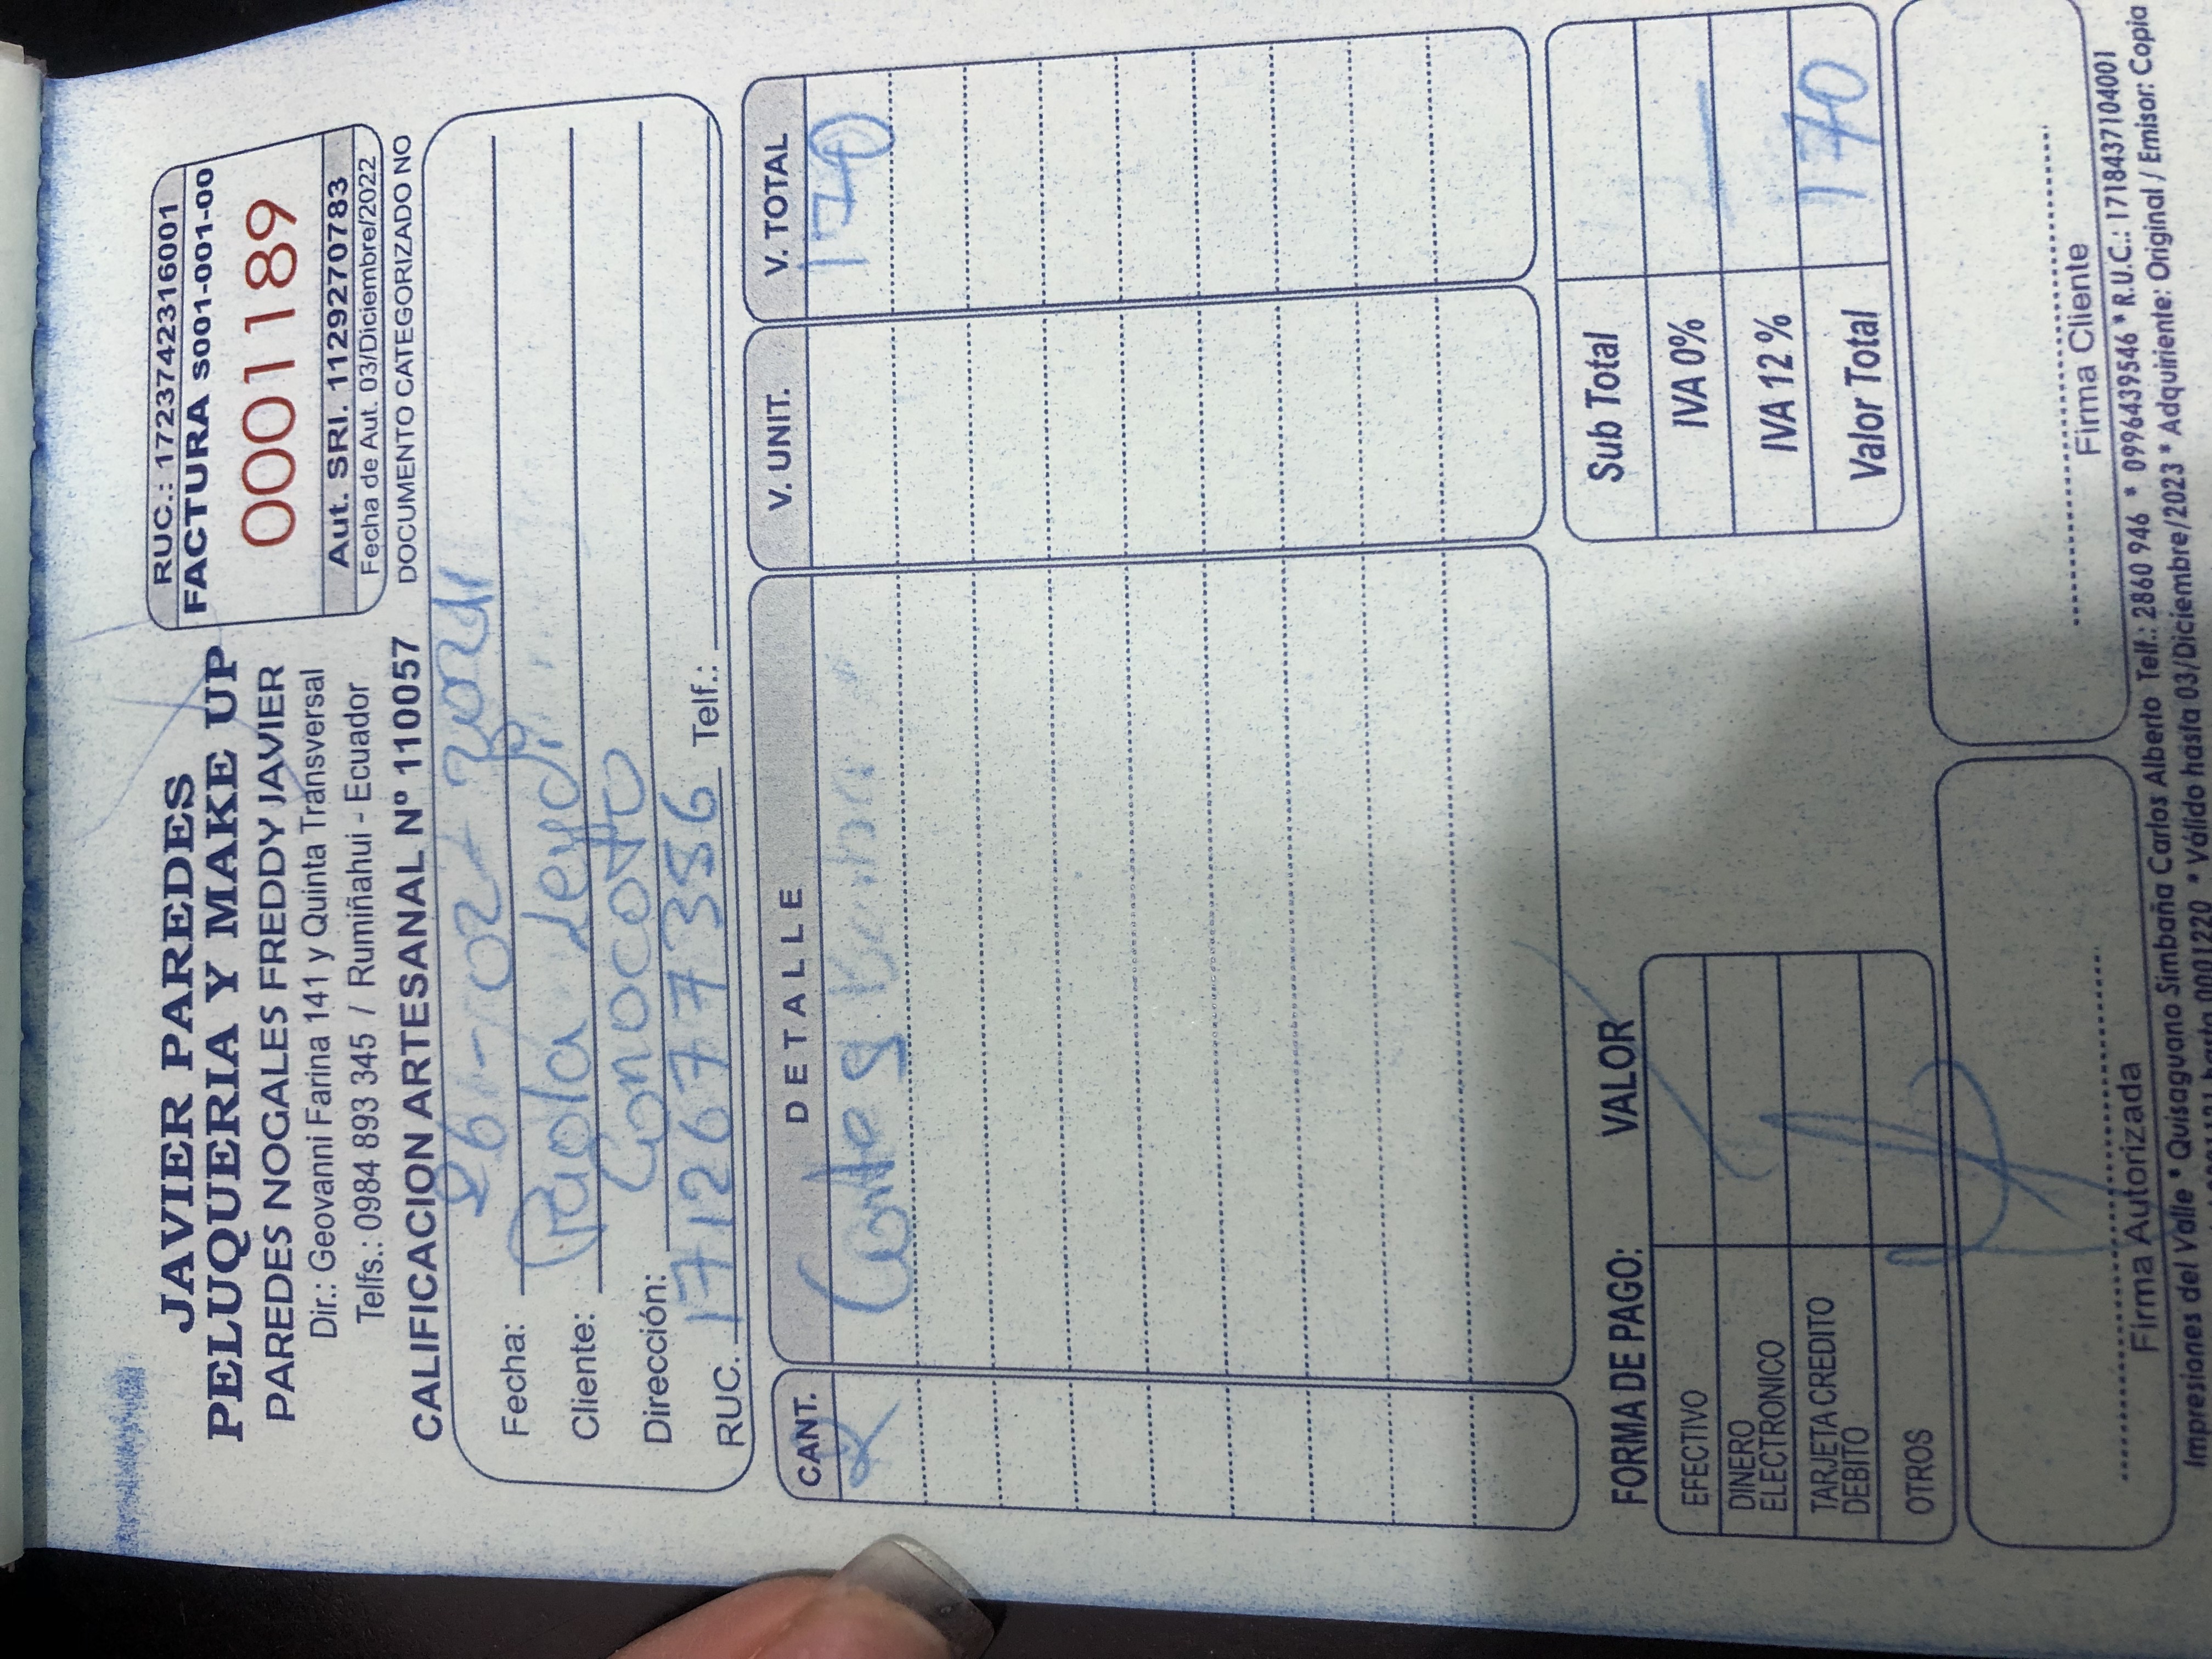 JAVIER PAREDES
PELUQUERIA Y MAKE UP
PAREDES NOGALES FREDDY JAVIER
Dir.: Geovanni Farina 141 y Quinta Transversal
Telfs.: 0984 893 345 / Rumiñahui - Ecuador
CALIFICACION ARTESANAL Nº 110057
RUC.: 1723742316001
FACTURA S001-001-00
0001189
Aut. SRI. 1129270783
Fecha de Aut. 03/Diciembre/2022
DOCUMENTO CATEGORIZADO NO
Fecha: 26-02-2024
Cliente: Paola Leydi
Dirección: Conocoto
RUC. 1712677386 Telf.:
CANT. DETALLE V. UNIT. V. TOTAL
2 Cortes 170
FORMA DE PAGO: VALOR
EFECTIVO
DINERO
ELECTRONICO
TARJETA CREDITO
DEBITO
OTROS
Sub Total
IVA 0% —
IVA 12 %
Valor Total 170
Firma Autorizada
Firma Cliente
Impresiones del Valle * Quisaguano Simbaña Carlos Alberto Telf.: 2860 946 * 0996439546 * R.U.C.: 1718437104001
hasta 0001220 * Válido hasta 03/Diciembre/2023 * Adquiriente: Original / Emisor: Copia